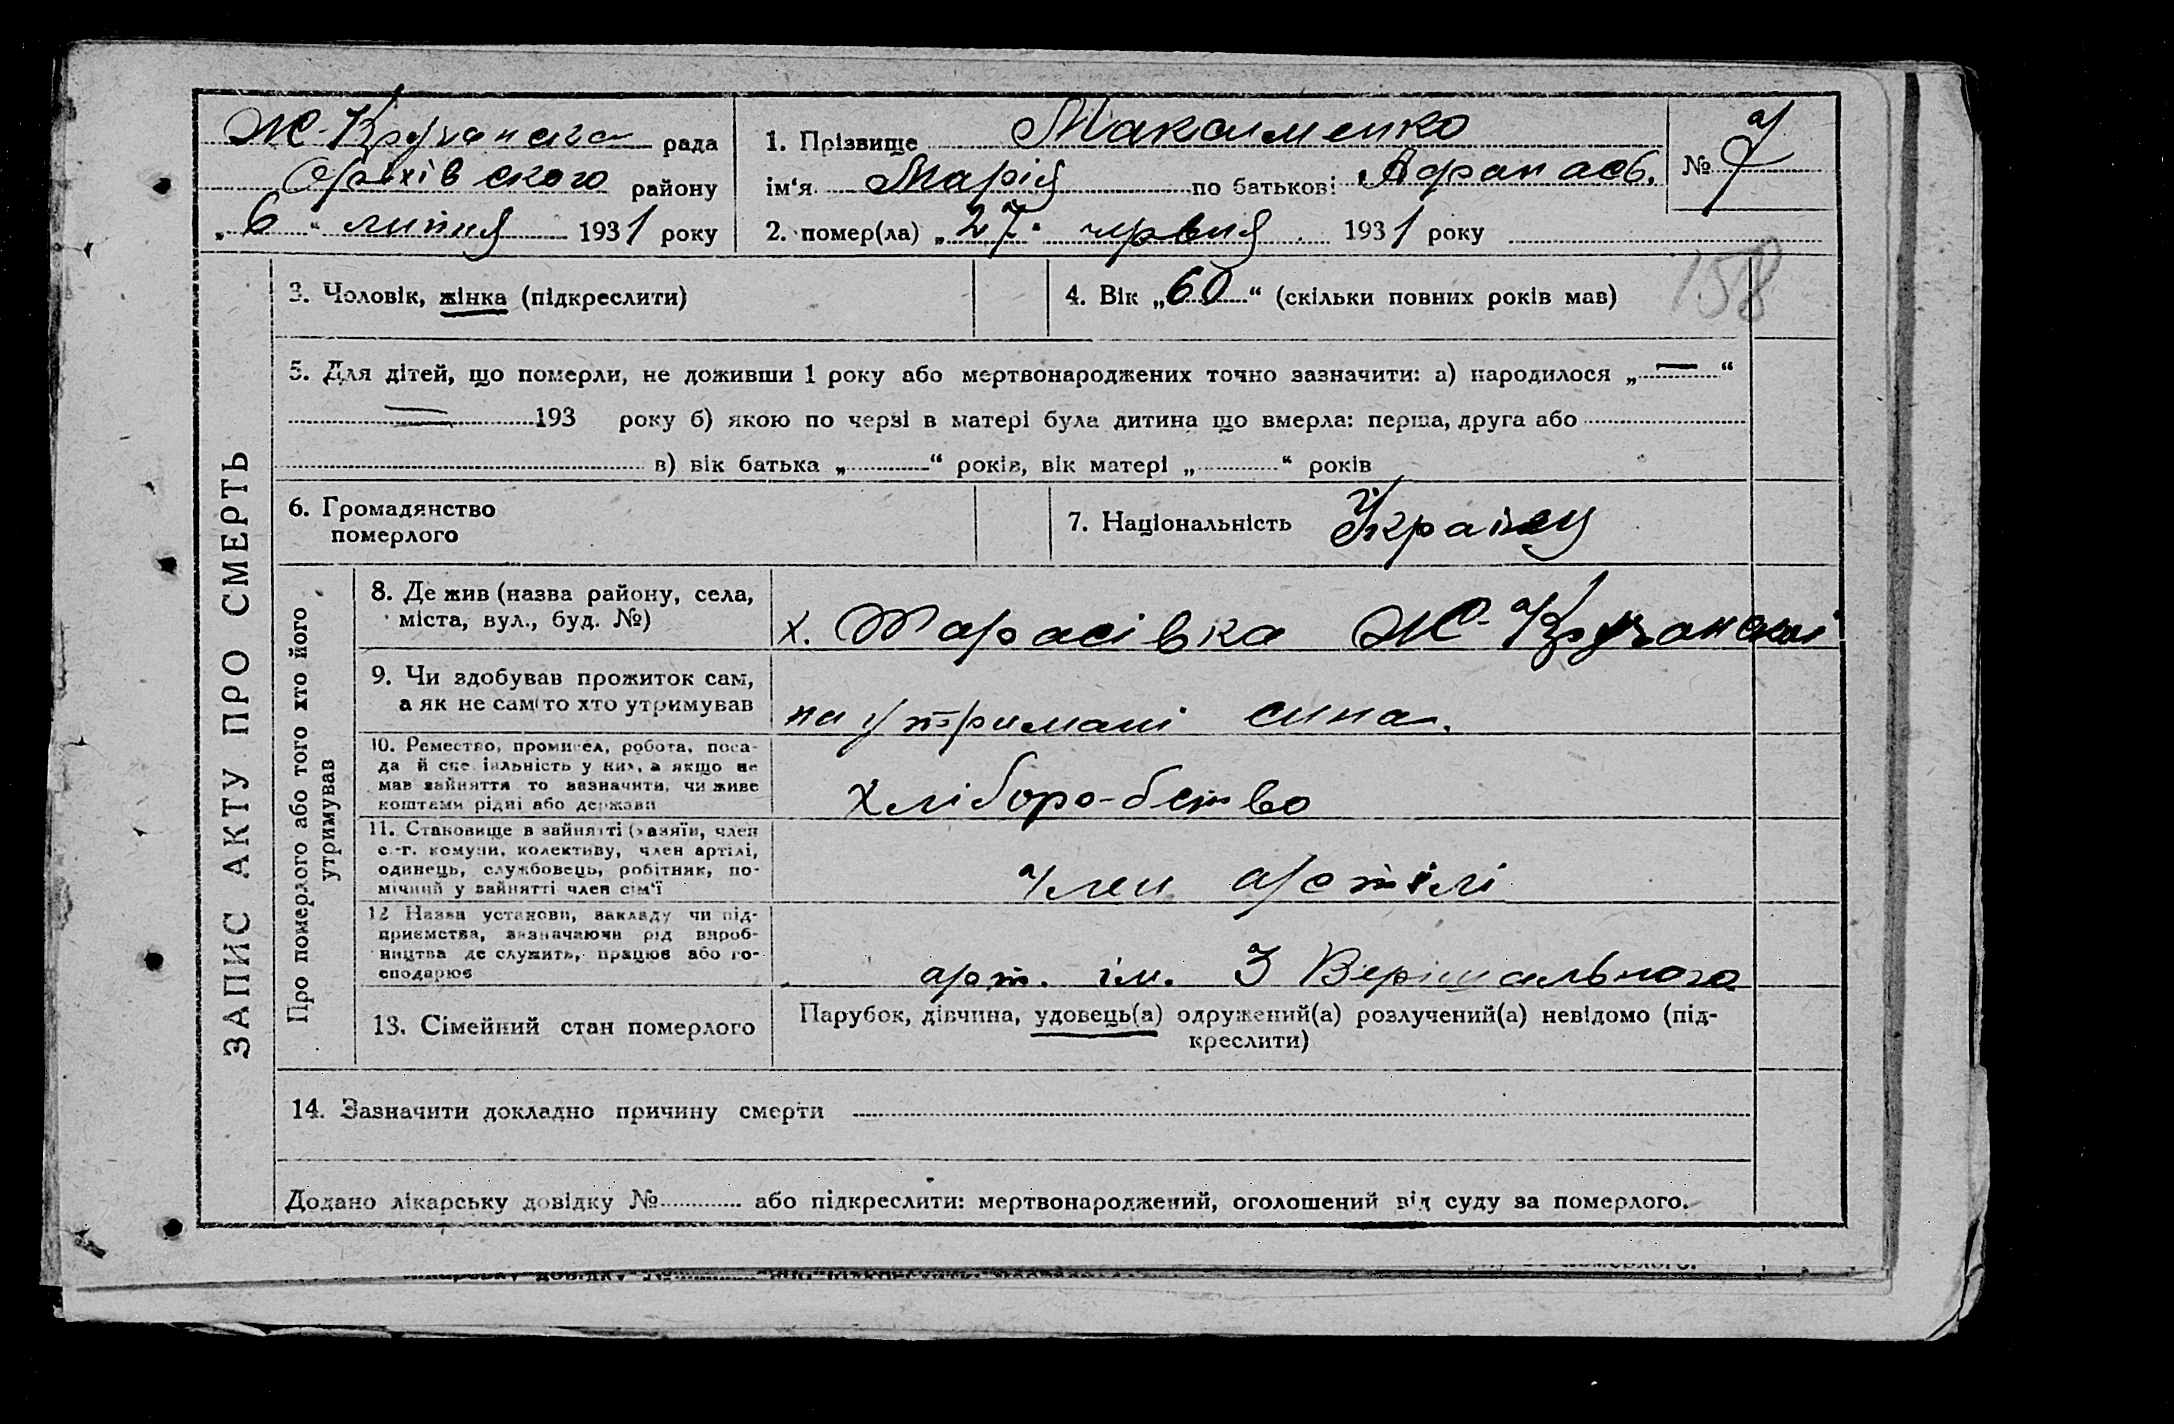 Ж-Кручанська рада
Оріхівського району
„6“ липня 1931 року
1. Прізвище Максименко
ім'я Марія по батькові Афанасв.
2. помер(ла) „27“ червня 1931 року
№ 7
158
ЗАПИС АКТУ ПРО СМЕРТЬ
3. Чоловік, жінка (підкреслити)
4. Вік „60“ (скільки повних років мав)
5. Для дітей, що померли, не доживши 1 року або мертвонароджених точно зазначити: а) народилося „—“
— 193 року б) якою по черзі в матері була дитина що вмерла: перша, друга або
в) вік батька „ “ років, вік матері „ “ років
6. Громадянство
померлого
7. Національність Українц
Про померлого або того хто його
утримував
8. Де жив (назва району, села,
міста, вул., буд. №)
х. Тарасівка Ж-Кручанскі
9. Чи здобував прожиток сам,
а як не сам то хто утримував
на утримані сина.
10. Ремество, промисел, робота, поса-
да й спеціальність у них, а якщо не
мав зайняття то зазначити, чи живе
коштами рідні або держави
Хліборо-бство
11. Становище в зайнятті (хазяїн, член
с.-г. комуни, колективу, член артілі,
одинець, службовець, робітник, по-
мічний у зайнятті член сім'ї
член артілі
12 Назва установи, закладу чи під-
приємства, зазначаючи рід вироб-
ництва де служить, працює або го-
сподарює
арт. ім. 3 Верішального
13. Сімейний стан померлого
Парубок, дівчина, удовець(а) одружений(а) розлучений(а) невідомо (під-
креслити)
14. Зазначити докладно причину смерти
Додано лікарську довідку № або підкреслити: мертвонароджений, оголошений від суду за померлого.